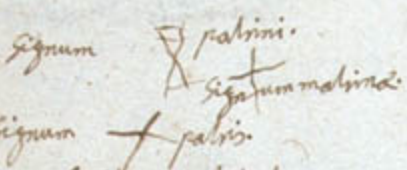 Signum patrini.
Signum matrinæ.
Signum patris.